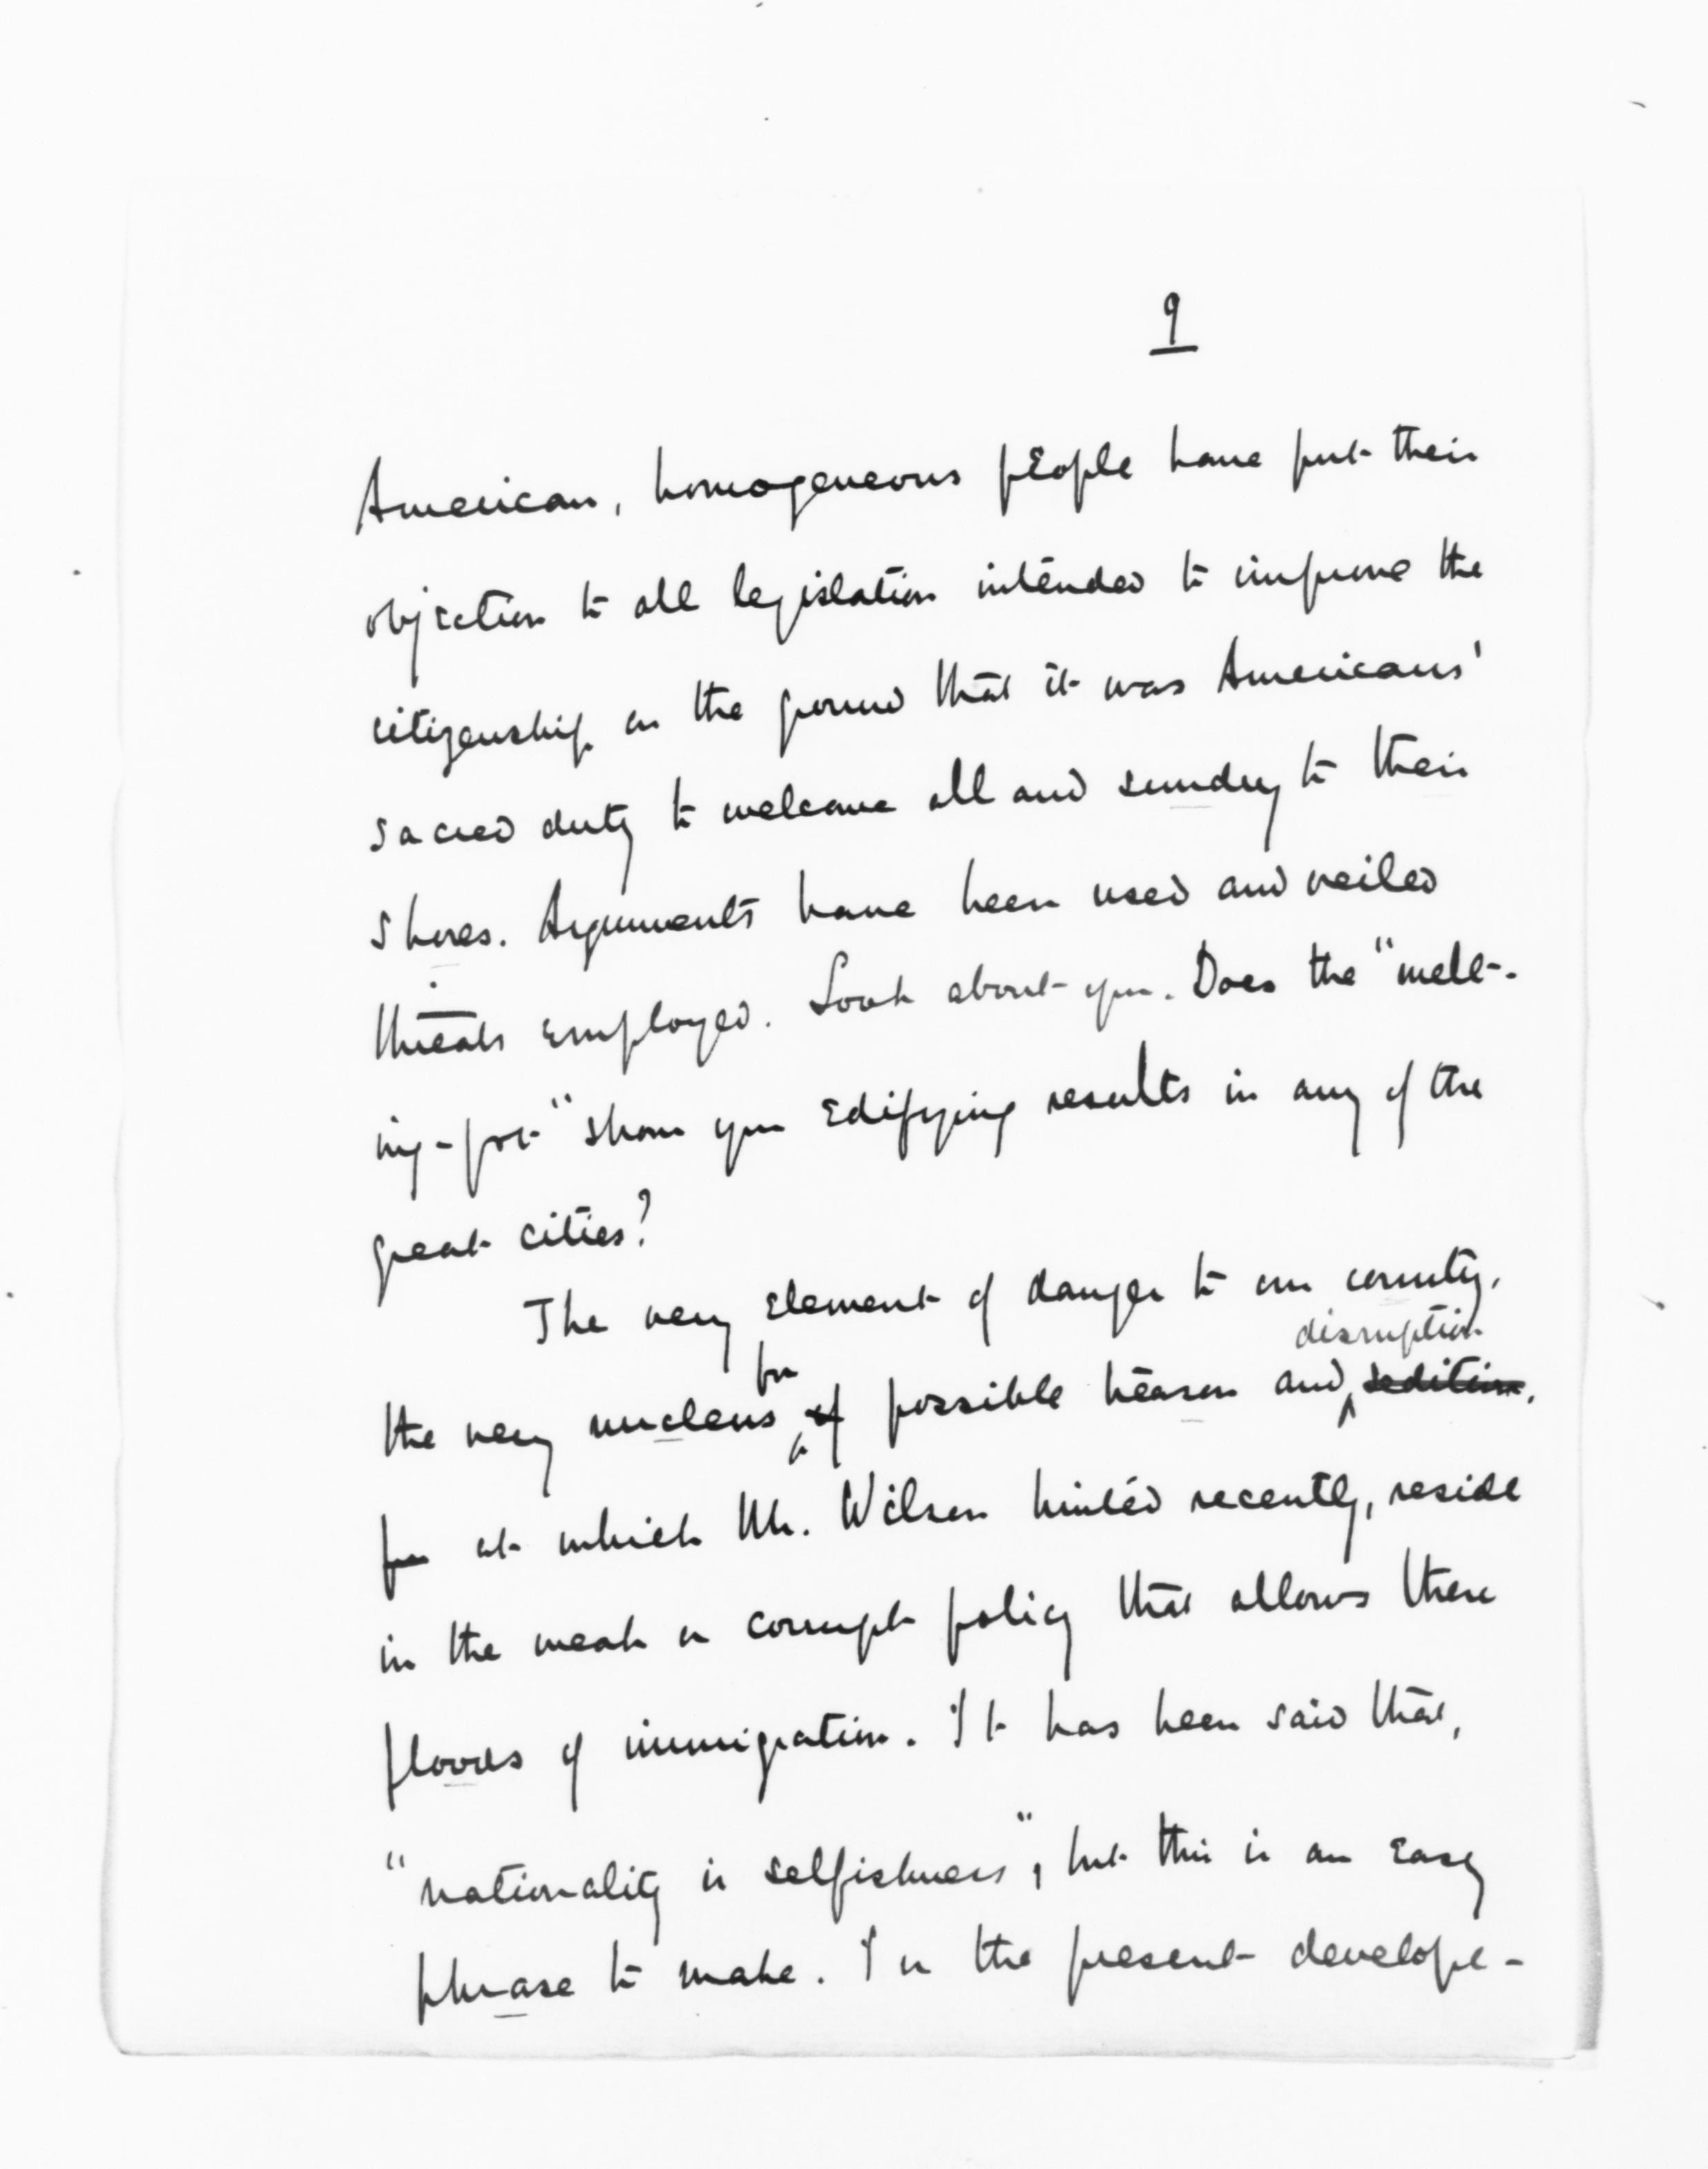 9
American, homogeneous people have put their
objection to all legislation intended to improve the
citizenship on the ground that it was Americans'
sacred duty to welcome all and sundry to their
shores. Arguments have been used and veiled
threats employed. Look about you. Does the "melt-
ing-pot" show you edifying results in any of the
great cities?
The very element of danger to our country,
disruption
for
the very nucleus of possible treason and sedition,
for at which Mr. Wilson hinted recently, reside
in the weak or corrupt policy that allows these
floods of immigration. It has been said that,
"nationality is selfishness", but this is an easy
phrase to make. In the present develope-